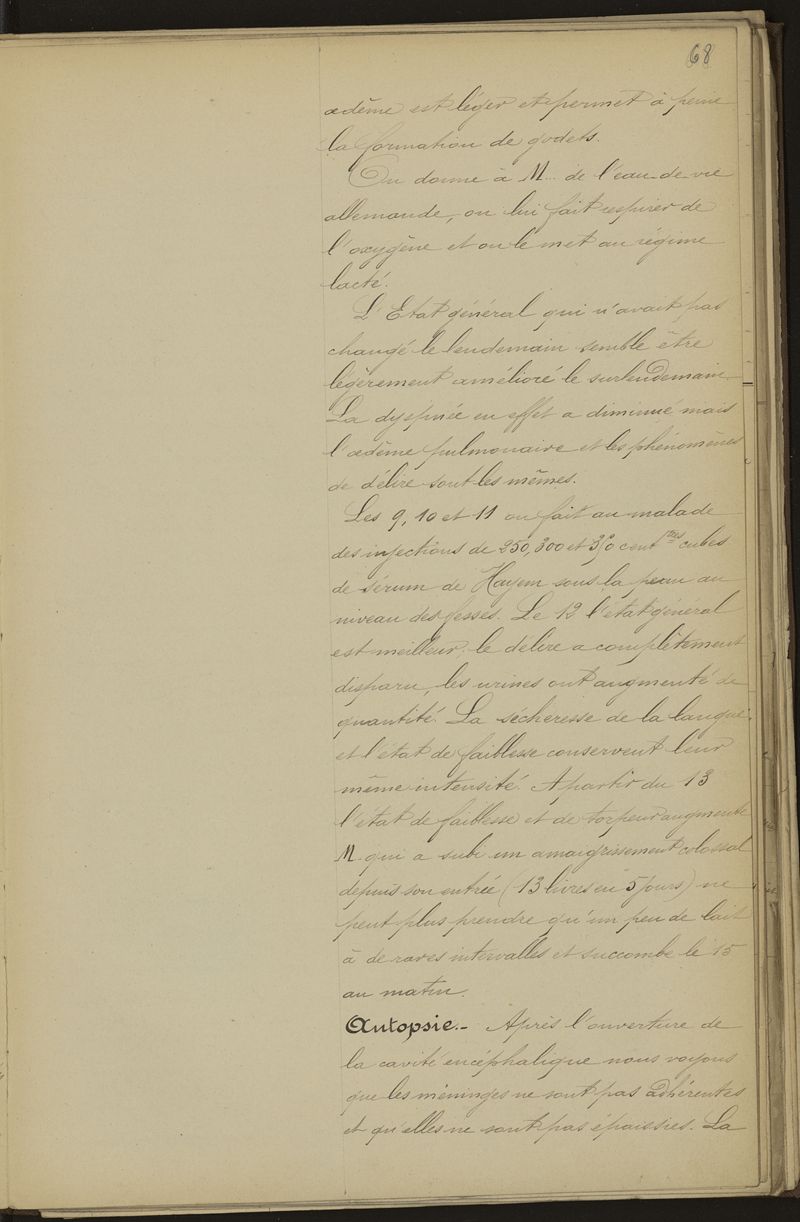 68
œdême est léger et permet à peine
la formation de godets.
On donne à M... de l'eau-de-vie
allemande, on lui fait respirer de
l'oxygène et on le met au régime
lacté.
L'Etat général qui n'avait pas
changé le lendemain semble être
légèrement amélioré le surlendemain
La dyspnée en effet a diminué mais
l'œdême pulmonaire et les phénomènes
de délire sont les mêmes.
Les 9, 10 et 11 on fait au malade
des injections de 250, 300 et 350 cent mes cubes
de sérum de Hayem sous la peau au
niveau des fesses. Le 12 l'état général
est meilleur. le délire a complètement
disparu, les urines ont augmenté de
quantité. La sécheresse de la langue
et l'état de faiblesse conservent leur
même intensité. A partir du 13
l'état de faiblesse et de torpeur augmente
M. qui a subi un amaigrissement colossal
depuis son entrée (13 livres en 5 jours) ne
peut plus prendre qu'un peu de lait
à de rares intervalles et succombe le 15
au matin.
Autopsie.- Après l'ouverture de
la cavité encéphalique nous voyons
que les méninges ne sont pas adhérentes
et qu'elles ne sont pas épaissies. La